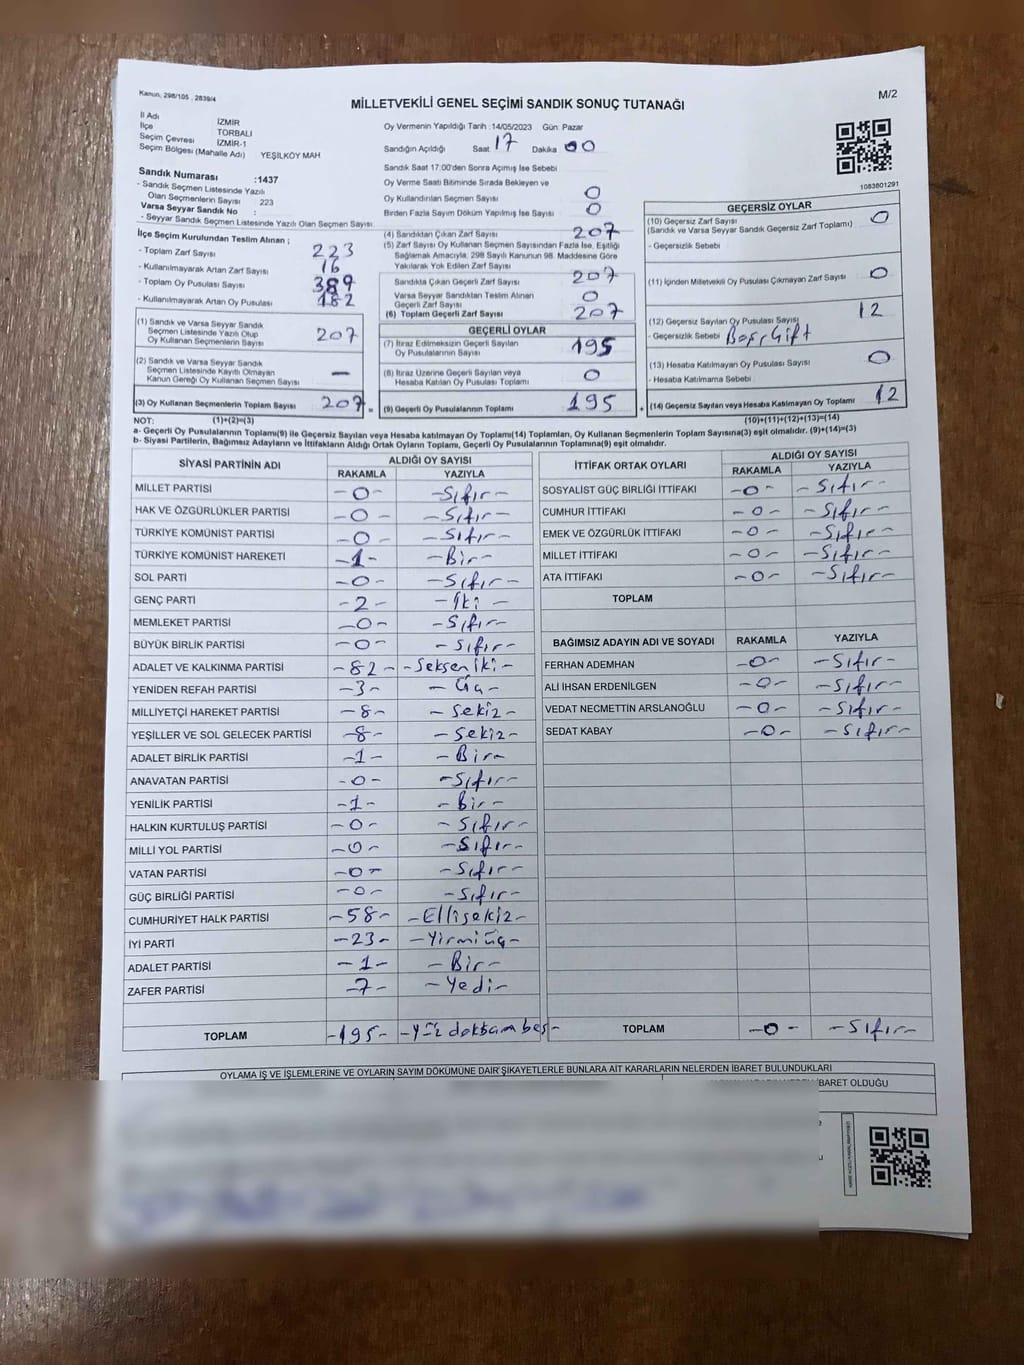 Kanun, 298/105 , 2839/4
MİLLETVEKİLİ GENEL SEÇİMİ SANDIK SONUÇ TUTANAĞI
M/2
İl Adı İZMİR
İlçe TORBALI
Seçim Çevresi İZMİR-1
Seçim Bölgesi (Mahalle Adı) YEŞİLKÖY MAH
Sandık Numarası :1437
- Sandık Seçmen Listesinde Yazılı
Olan Seçmenlerin Sayısı 223
Varsa Seyyar Sandık No :
- Seyyar Sandık Seçmen Listesinde Yazılı Olan Seçmen Sayısı:
İlçe Seçim Kurulundan Teslim Alınan ;
- Toplam Zarf Sayısı 223
- Kullanılmayarak Artan Zarf Sayısı 16
- Toplam Oy Pusulası Sayısı 389
- Kullanılmayarak Artan Oy Pusulası 182
(1) Sandık ve Varsa Seyyar Sandık
Seçmen Listesinde Yazılı Olup
Oy Kullanan Seçmenlerin Sayısı 207
(2) Sandık ve Varsa Seyyar Sandık
Seçmen Listesinde Kayıtlı Olmayan
Kanun Gereği Oy Kullanan Seçmen Sayısı —
(3) Oy Kullanan Seçmenlerin Toplam Sayısı 207
Oy Vermenin Yapıldığı Tarih :14/05/2023 Gün: Pazar
Sandığın Açıldığı Saat 17 Dakika 00
Sandık Saat 17:00'den Sonra Açımış İse Sebebi
Oy Verme Saati Bitiminde Sırada Bekleyen ve
Oy Kullandırılan Seçmen Sayısı 0
Birden Fazla Sayım Döküm Yapılmış İse Sayısı 0
(4) Sandıktan Çıkan Zarf Sayısı 207
(5) Zarf Sayısı Oy Kullanan Seçmen Sayısından Fazla İse, Eşitliği
Sağlamak Amacıyla, 298 Sayılı Kanunun 98. Maddesine Göre
Yakılarak Yok Edilen Zarf Sayısı
Sandıkta Çıkan Geçerli Zarf Sayısı 207
Varsa Seyyar Sandıktan Teslim Alınan
Geçerli Zarf Sayısı 0
(6) Toplam Geçerli Zarf Sayısı 207
GEÇERLİ OYLAR
(7) İtiraz Edilmeksizin Geçerli Sayılan
Oy Pusulalarının Sayısı 195
(8) İtiraz Üzerine Geçerli Sayılan veya
Hesaba Katılan Oy Pusulası Toplamı 0
= (9) Geçerli Oy Pusulalarının Toplamı 195
1083801291
GEÇERSİZ OYLAR
(10) Geçersiz Zarf Sayısı
(Sandık ve Varsa Seyyar Sandık Geçersiz Zarf Toplamı) 0
- Geçersizlik Sebebi
(11) İçinden Milletvekili Oy Pusulası Çıkmayan Zarf Sayısı 0
(12) Geçersiz Sayılan Oy Pusulası Sayısı 12
- Geçersizlik Sebebi
(13) Hesaba Katılmayan Oy Pusulası Sayısı 0
- Hesaba Katılmama Sebebi
+ (14) Geçersiz Sayılan veya Hesaba Katılmayan Oy Toplamı 12
NOT: (1)+(2)=(3) (10)+(11)+(12)+(13)=(14)
a- Geçerli Oy Pusulalarının Toplamı(9) ile Geçersiz Sayılan veya Hesaba katılmayan Oy Toplamı(14) Toplamları, Oy Kullanan Seçmenlerin Toplam Sayısına(3) eşit olmalıdır. (9)+(14)=(3)
b- Siyasi Partilerin, Bağımsız Adayların ve İttifakların Aldığı Ortak Oyların Toplamı, Geçerli Oy Pusulalarının Toplamına(9) eşit olmalıdır.
SİYASİ PARTİNİN ADI ALDIĞI OY SAYISI
RAKAMLA YAZIYLA
MİLLET PARTİSİ -0- -Sıfır-
HAK VE ÖZGÜRLÜKLER PARTİSİ -0- -Sıfır-
TÜRKİYE KOMÜNİST PARTİSİ -0- -Sıfır-
TÜRKİYE KOMÜNİST HAREKETİ -1- -Bir-
SOL PARTİ -0- -Sıfır-
GENÇ PARTİ -2- -İki-
MEMLEKET PARTİSİ -0- -Sıfır-
BÜYÜK BİRLİK PARTİSİ -0- -Sıfır-
ADALET VE KALKINMA PARTİSİ -82- -Seksen iki-
YENİDEN REFAH PARTİSİ -3- -Üç-
MİLLİYETÇİ HAREKET PARTİSİ -8- -Sekiz-
YEŞİLLER VE SOL GELECEK PARTİSİ -8- -Sekiz-
ADALET BİRLİK PARTİSİ -1- -Bir-
ANAVATAN PARTİSİ -0- -Sıfır-
YENİLİK PARTİSİ -1- -Bir-
HALKIN KURTULUŞ PARTİSİ -0- -Sıfır-
MİLLİ YOL PARTİSİ -0- -Sıfır-
VATAN PARTİSİ -0- -Sıfır-
GÜÇ BİRLİĞİ PARTİSİ -0- -Sıfır-
CUMHURİYET HALK PARTİSİ -58- -Ellisekiz-
İYİ PARTİ -23- -Yirmiüç-
ADALET PARTİSİ -1- -Bir-
ZAFER PARTİSİ -7- -Yedi-
TOPLAM -195- -Yüz doksam beş-
İTTİFAK ORTAK OYLARI ALDIĞI OY SAYISI
RAKAMLA YAZIYLA
SOSYALİST GÜÇ BİRLİĞİ İTTİFAKI -0- -Sıfır-
CUMHUR İTTİFAKI -0- -Sıfır-
EMEK VE ÖZGÜRLÜK İTTİFAKI -0- -Sıfır-
MİLLET İTTİFAKI -0- -Sıfır-
ATA İTTİFAKI -0- -Sıfır-
TOPLAM
BAĞIMSIZ ADAYIN ADI VE SOYADI RAKAMLA YAZIYLA
FERHAN ADEMHAN -0- -Sıfır-
ALİ İHSAN ERDENİLGEN -0- -Sıfır-
VEDAT NECMETTİN ARSLANOĞLU -0- -Sıfır-
SEDAT KABAY -0- -Sıfır-
TOPLAM -0- -Sıfır-
OYLAMA İŞ VE İŞLEMLERİNE VE OYLARIN SAYIM DÖKÜMÜNE DAİR ŞİKAYETLERLE BUNLARA AİT KARARLARIN NELERDEN İBARET BULUNDUKLARI
İBARET OLDUĞU